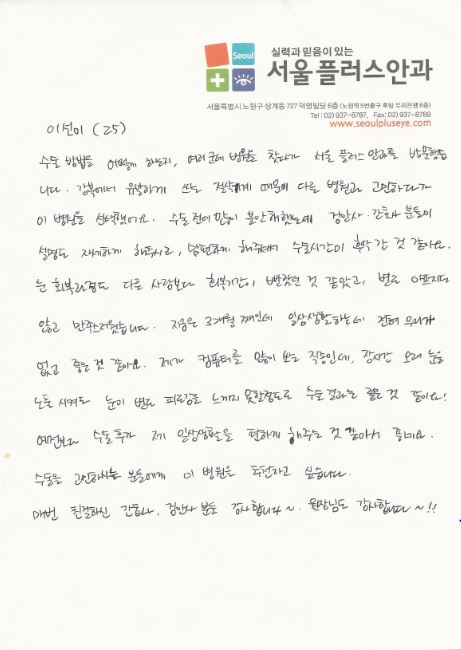 실력과 믿음이 있는
Seoul
서울플러스안과
서울특별시 노원구 상계동 727 덕영빌딩 6층 (노원역 5번출구 후방 우리은행 6층)
Tel : 02) 937-8787, Fax : 02) 937-8789
www.seoulpluseye.com
(25)
수술 방법을 어떻게 하는지, 여러군데 병원을 찾다가 서울플러스안과를 방문했습
니다. 강북에서 유일하게 쓰는 때문에 다른 병원과 고민하다가
이 병원을 선택했어요. 수술전에 많이 불안해했는데 검안사·간호사 분들이
설명도 자세하게 해주시고, 남편하게 해주셔서 수술시간이 후딱 간 것 같아요.
눈 회복과정도 다른 사람보다 회복기간이 빨랐던 것 같았고, 별로 아프지도
않고 만족스러웠습니다. 지금은 3개월째인데 일상생활하는데 전혀 무리가
없고 좋은 것 같아요. 제가 컴퓨터를 많이 쓰는 직종인데, 장시간 오래 눈을
노출 시켜도 눈이 별로 피로감을 느끼지 못할정도로 수술 결과는 좋은 것 같아요!
예전보다 수술후가 제 일상생활을 편하게 해주는 것 같아서 좋네요.
수술을 고민하시는 분들에게 이 병원을 추천하고 싶습니다.
매번 친절하신 간호사, 검안사 분들 감사합니다~. 원장님도 감사합니다~!!